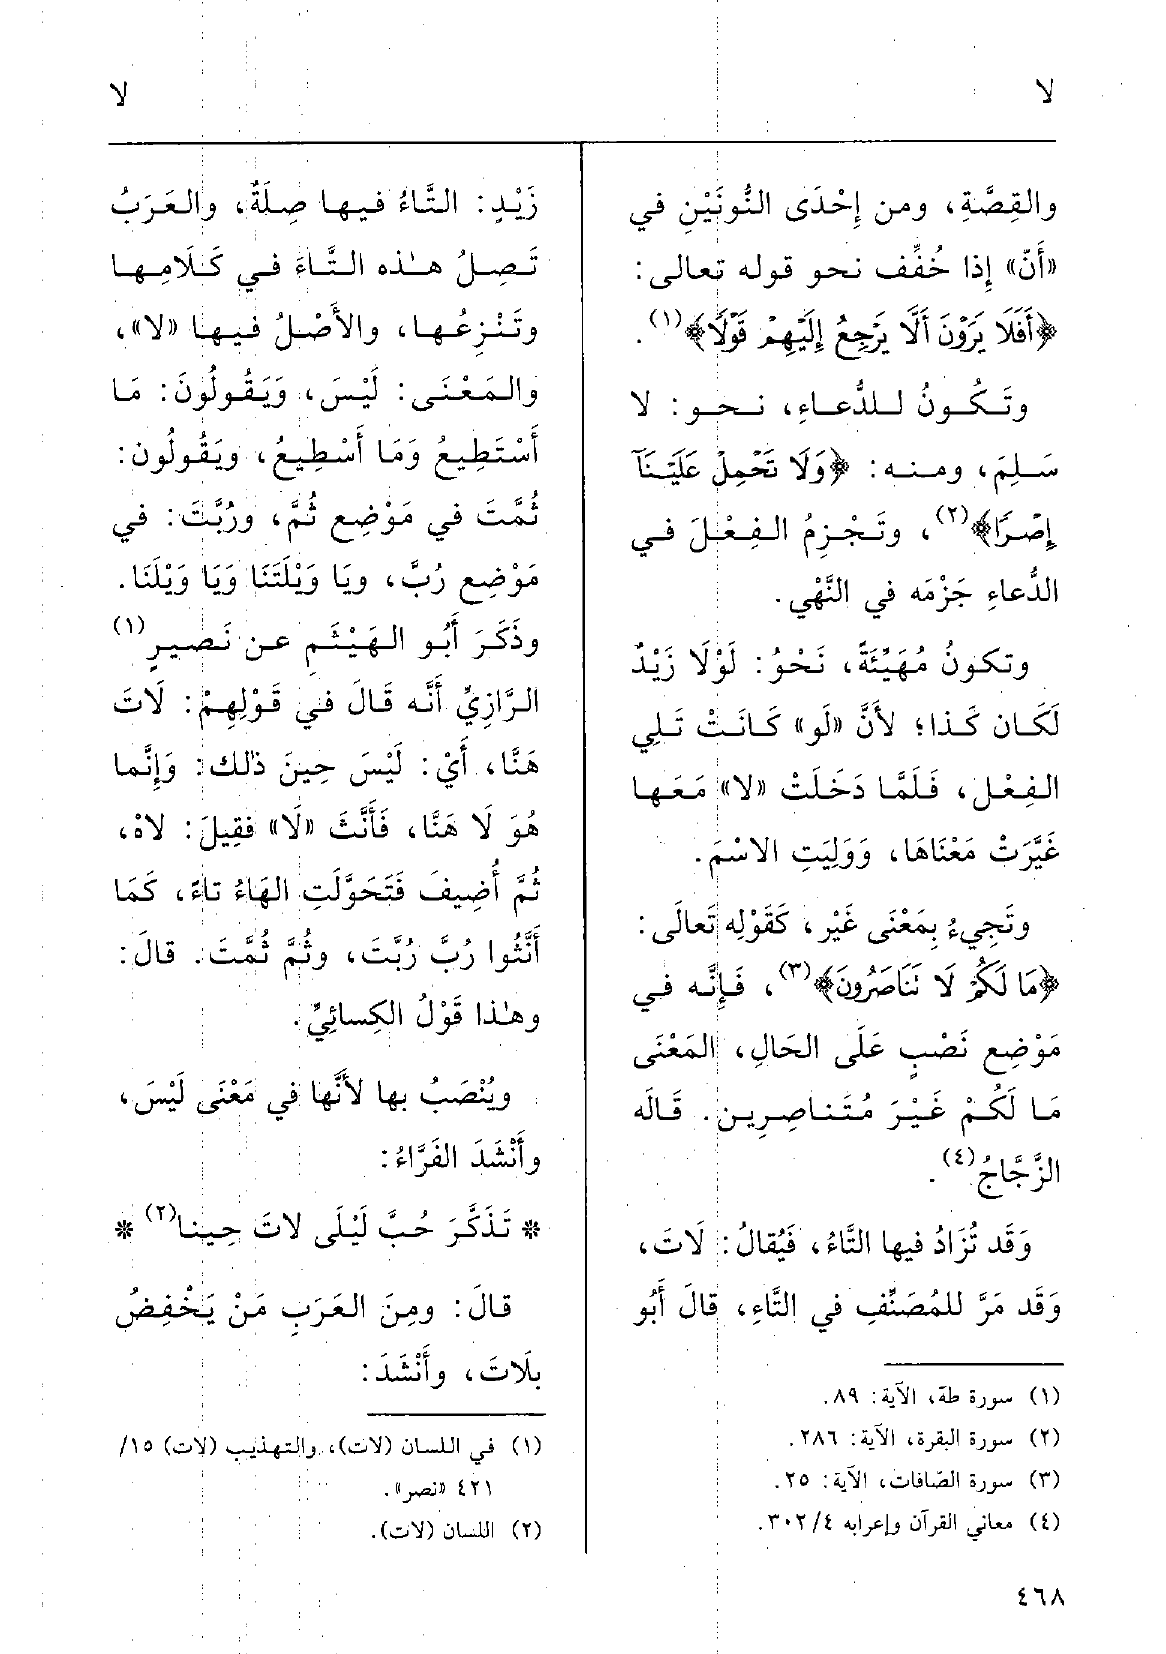 لا
لا
والقِصَّةِ، ومن إِحْدَى النُّونَيْنِ في
«أَنّ» إِذا خُفِّف نحو قوله تعالى:
﴿أَفَلَا يَرَوْنَ أَلَّا يَرْجِعُ إِلَيْهِمْ قَوْلًا﴾(١).
وتَكُونُ للدُّعاءِ، نحو: لا
سَلِمَ، ومنه: ﴿وَلَا تَحْمِلْ عَلَيْنَآ
إِصْرًا﴾(٢)، وتَجْزِمُ الفِعْلَ في
الدُّعاءِ جَزْمَه في النَّهْي.
وتكونُ مُهَيِّئَةً، نَحْوُ: لَوْلَا زَيْدٌ
لَكَان كَذا؛ لأَنَّ «لَو» كَانَتْ تَلِي
الفِعْل، فَلَمَّا دَخَلَتْ «لا» مَعَها
غَيَّرَتْ مَعْنَاهَا، وَوَلِيَتِ الاسْمَ.
وتَجِيءُ بِمَعْنَى غَيْر، كَقَوْلِه تَعالَى:
﴿مَا لَكُمْ لَا تَنَاصَرُونَ﴾(٣)، فَإِنَّه في
مَوْضِع نَصْبٍ عَلَى الحَالِ، المَعْنَى
مَا لَكُمْ غَيْرَ مُتَناصِرِين. قَالَه
الزَّجَّاجُ(٤).
وَقَد تُزَادُ فيها التَّاءُ، فَيُقالُ: لَاتَ،
وَقَد مَرَّ للمُصَنِّفِ في التَّاءِ، قالَ أَبُو
(١) سورة طهٓ، الآية: ٨٩.
(٢) سورة البقرة، الآية: ٢٨٦.
(٣) سورة الصّافات، الآية: ٢٥.
(٤) معاني القرآن وإعرابه ٣٠٢/٤.
زَيْدٍ: التَّاءُ فيها صِلَةٌ، والعَرَبُ
تَصِلُ هذه التَّاءَ في كَلَامِها
وتَنْزِعُها، والأَصْلُ فيها «لا»،
والمَعْنَى: لَيْسَ، وَيَقُولُونَ: مَا
أَسْتَطِيعُ وَمَا أَسْطِيعُ، ويَقُولُون:
ثُمَّتَ في مَوْضِع ثُمَّ، ورُبَّتَ: في
مَوْضِع رُبَّ، ويَا وَيْلَتَنَا وَيَا وَيْلَنَا.
وذَكَرَ أَبُو الهَيْثَمِ عن نَصِيرٍ(١)
الرَّازِيِّ أَنَّه قَالَ في قَوْلِهِمْ: لَاتَ
هَنَّا، أَيْ: لَيْسَ حِينَ ذلك: وَإِنَّما
هُوَ لَا هَنَّا، فَأَنَّثَ «لَا» فقِيلَ: لاهْ،
ثُمَّ أُضِيفَ فَتَحَوَّلَتِ الهَاءُ تاءً، كَمَا
أَنَّثُوا رُبَّ رُبَّتَ، وثُمَّ ثُمَّتَ. قالَ:
وهٰذا قَوْلُ الكِسائِيِّ.
ويُنْصَبُ بها لأَنَّها في مَعْنَى لَيْسَ،
وأَنْشَدَ الفَرَّاءُ:
* تَذَكَّرَ حُبَّ لَيْلَى لاتَ حِينا(٢) *
قالَ: ومِنَ العَرَبِ مَنْ يَخْفِضُ
بلَاتَ، وأَنْشَدَ:
(١) في اللسان (لات)، والتهذيب (لات) ١٥/
٤٢١ «نصر».
(٢) اللسان (لات).
٤٦٨